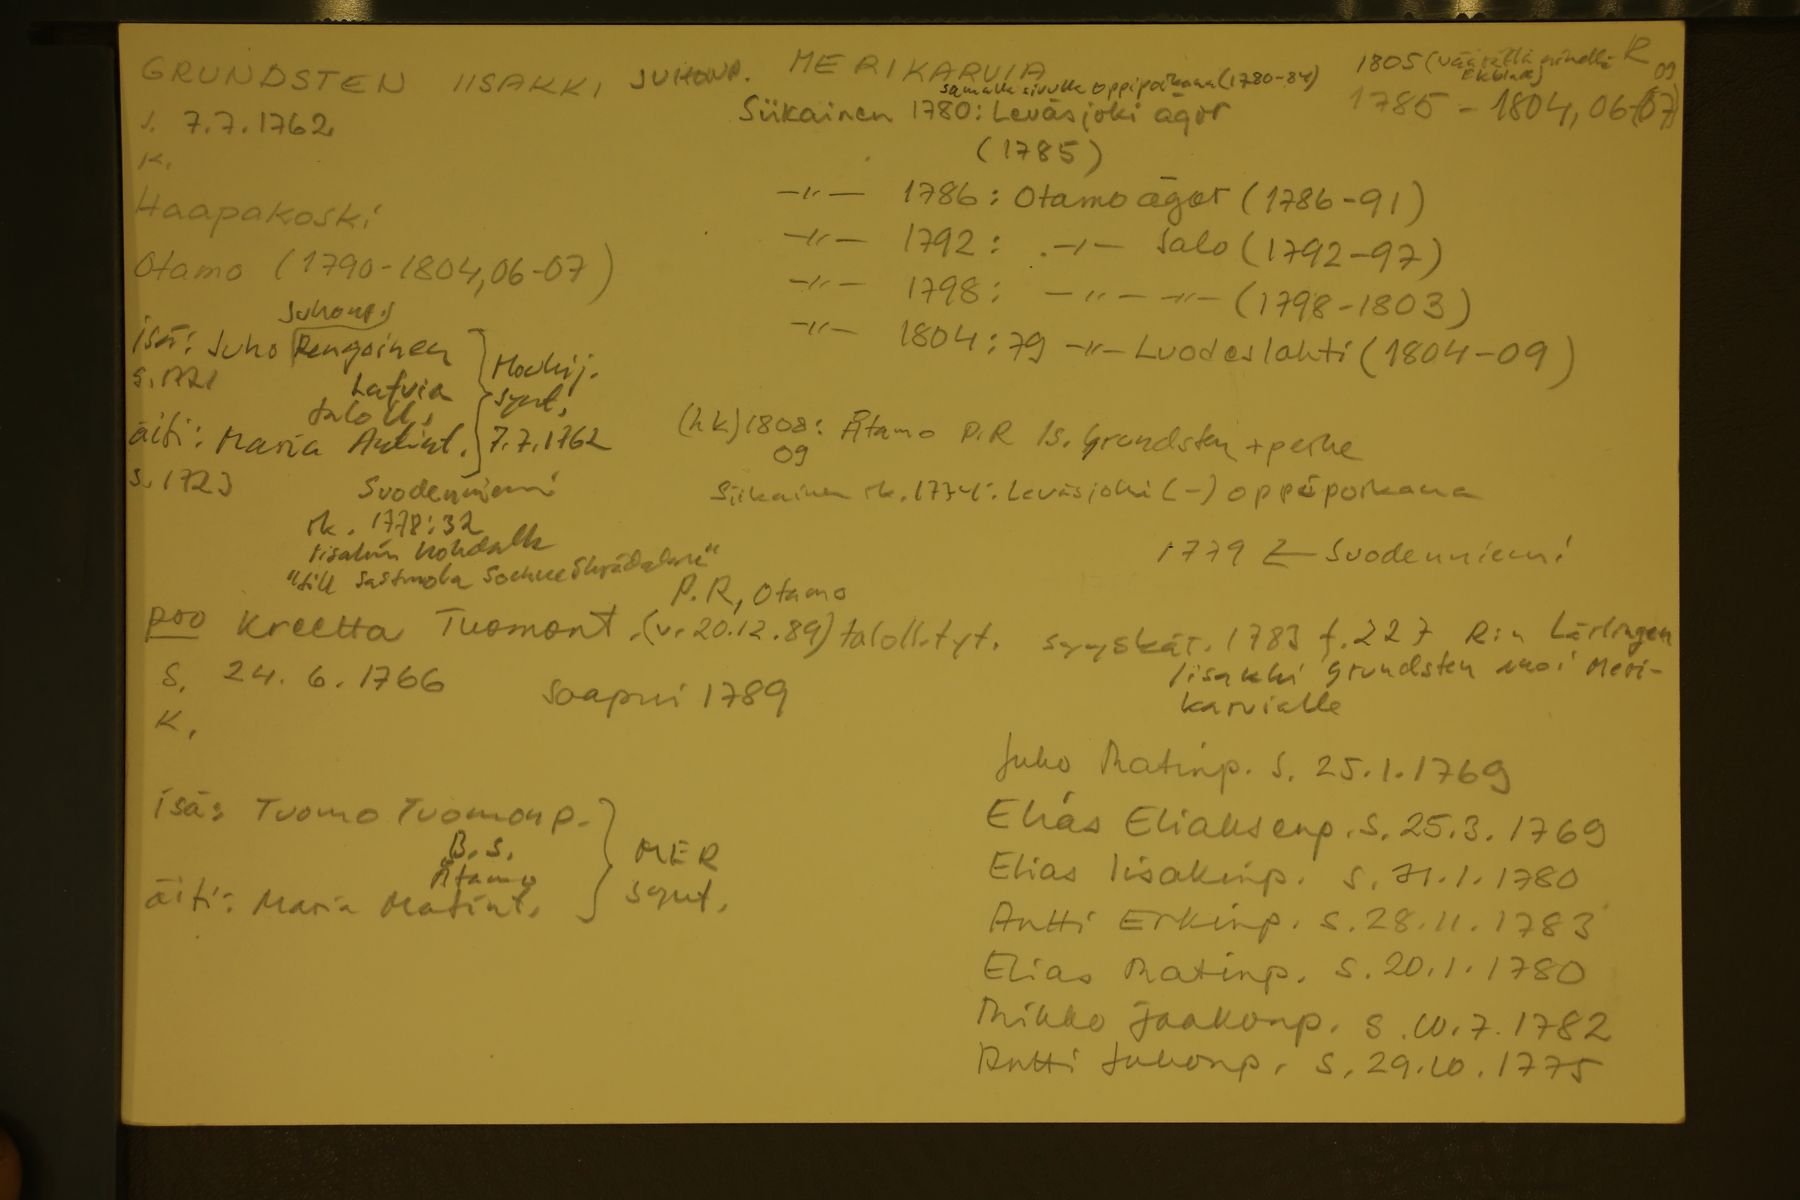 GRUNDSTEN IISAKKI JUHONP. MERIKARVIA 1805 (väärällä nimellä R
Ekblad) 09
samalle sivulle oppipoikana (1780-84)
1785 - 1804, 06-(07)
s. 7.7.1762 Siikainen 1780: Leväsjoki ägor
K. (1785)
Haapakoski -"- 1786: Otamo ägor (1786-91)
Otamo (1790-1804, 06-07) -"- 1792: -"- Salo (1792-97)
-"- 1798: -"- -"- (1798-1803)
-"- 1804: 79 -"- Luodeslahti (1804-09)
Juhonp.
isä: Juho Rengoinen
s. 1721 Latvia
taloll.
äiti: Maria Antint.
s. 1723
Mouhij.
synt.
7.7.1762
(hk) 1808: Ätamo P.R Is. Grundsten + perhe
09
Suodenniemi
rk. 1778:32
Iisakin kohdalla
"till Sastmola Sochne
Siikainen rk. 1774: Leväsjoki (-) oppipoikana
1779 ← Suodenniemi
P.R, Otamo
poo Kreetta Tuomont. (v. 20.12.89) taloll. tyt.
s. 24.6.1766 saapui 1789
K.
syyskär. 1783 f. 227 R:n Lärlingen
Iisakki Grundsten Meri-
karvialle
isä: Tuomo Tuomonp.
B.S.
Ätamo
äiti: Maria Matint.
MER
synt.
Juho Matinp. s. 25.1.1769
Elias Eliaksenp. s. 25.3.1769
Elias Iisakinp. s. 31.1.1780
Antti Erkinp. s. 28.11.1783
Elias Matinp. s. 20.1.1780
Mikko Jaakonp. s. 10.7.1782
Antti Juhonp. s. 29.10.1775